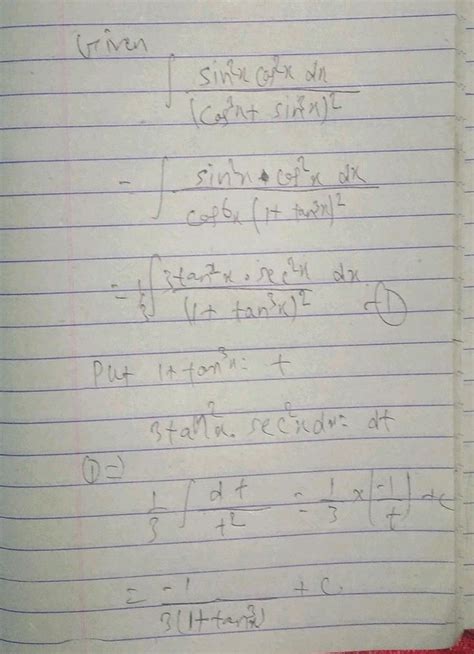 Given
∫ sin²x cos²x dx / (cos³x + sin³x)²
= ∫ sin²x · cos²x dx / cos⁶x (1 + tan³x)²
= 1/3 ∫ 3tan²x · sec²x dx / (1 + tan³x)² —①
Put 1 + tan³x = t
3tan²x · sec²x dx = dt
① ⇒
1/3 ∫ dt / t² = 1/3 × (-1/t) + c
= -1 / 3(1 + tan³x) + c.